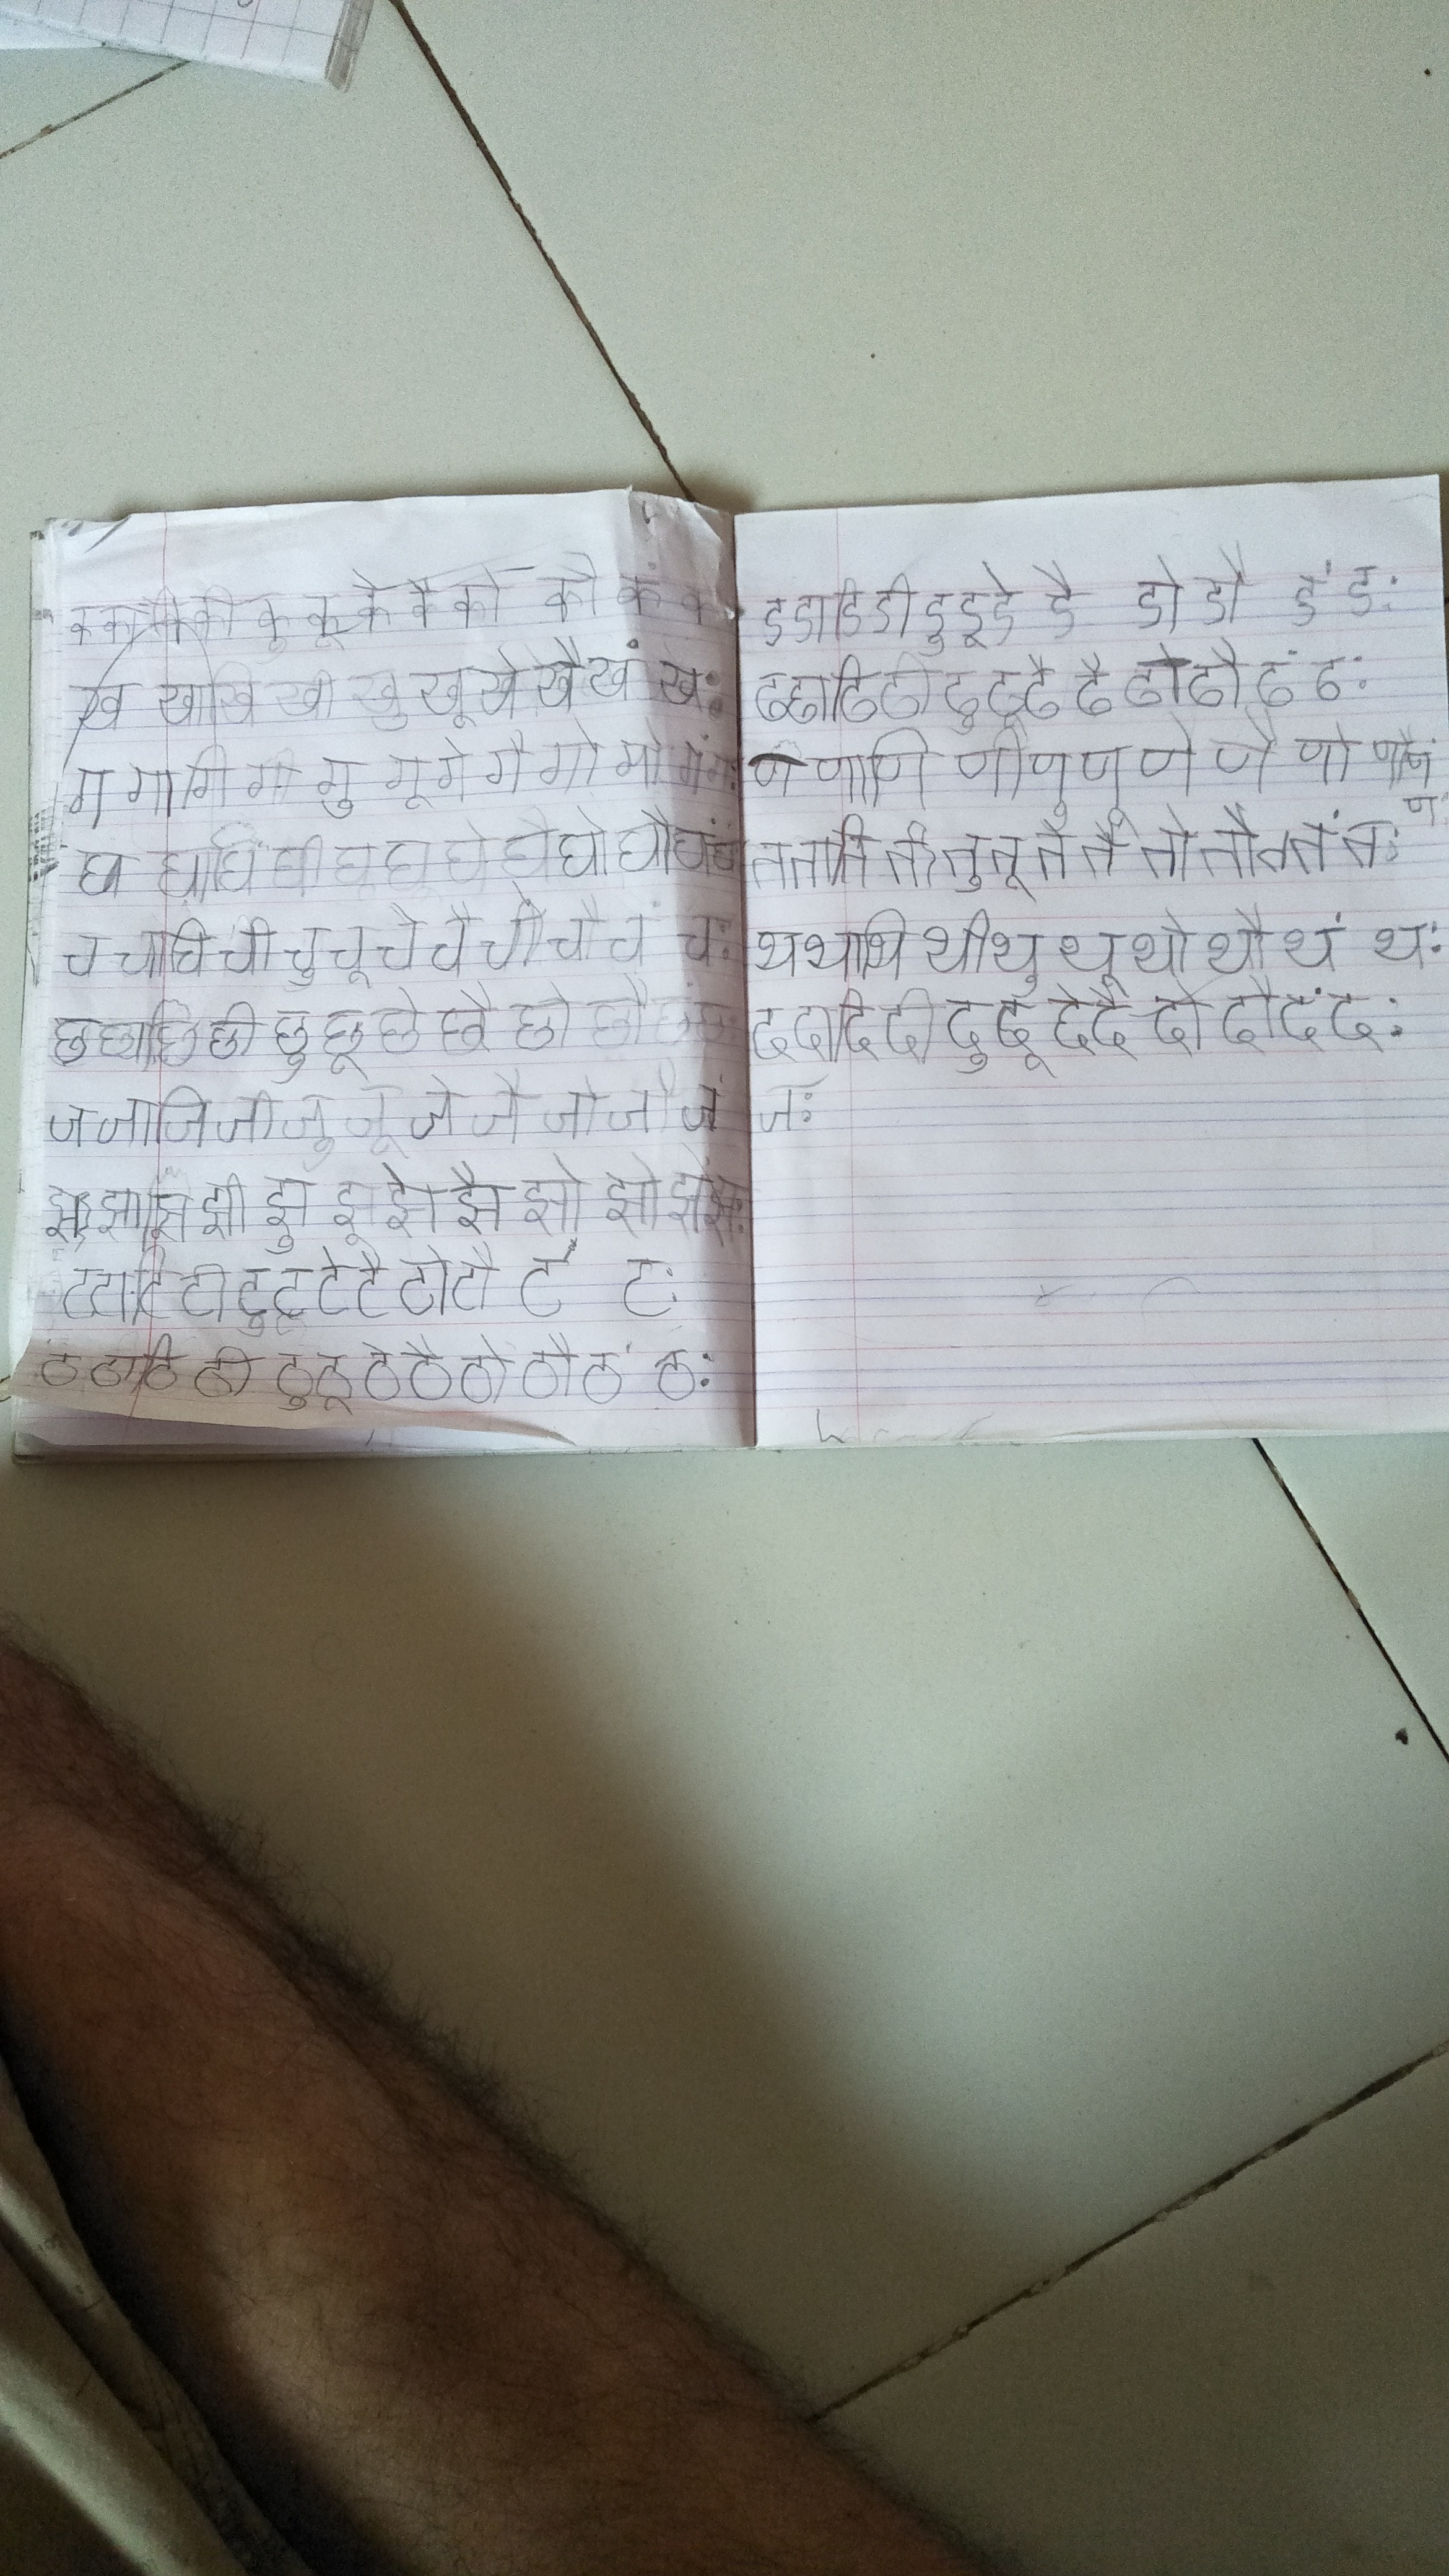 क का कि की कु कू के कै को कौ कं क
ख खा खि खी खु खू खे खै खं खः
ग गा गि गी गु गू गे गै गो गौ गं गः
घ घा घि घी घु घू घे घै घो घौ घं घः
च चा चि ची चु चू चे चै चो चौ चं चः
छ छा छि छी छु छू छे छै छो छौ छं छः
ज जा जि जी जु जू जे जै जो जौ जं जः
झ झा झि झी झु झू झे झै झो झौ झं झः
ट टा टि टी टु टू टे टै टो टौ टं टः
ठ ठा ठि ठी ठु ठू ठे ठै ठो ठौ ठं ठः
ड डा डि डी डु डू डे डै डो डौ डं डः
ढ ढा ढि ढी ढु ढू ढे ढै ढो ढौ ढं ढः
ण णा णि णी णु णू णे णै णो णौ णं
णः
त ता ति ती तु तू ते तै तो तौ त तं तः
थ था थि थी थु थू थो थौ थं थः
द दा दि दी दु दू दे दै दो दौ दं दः